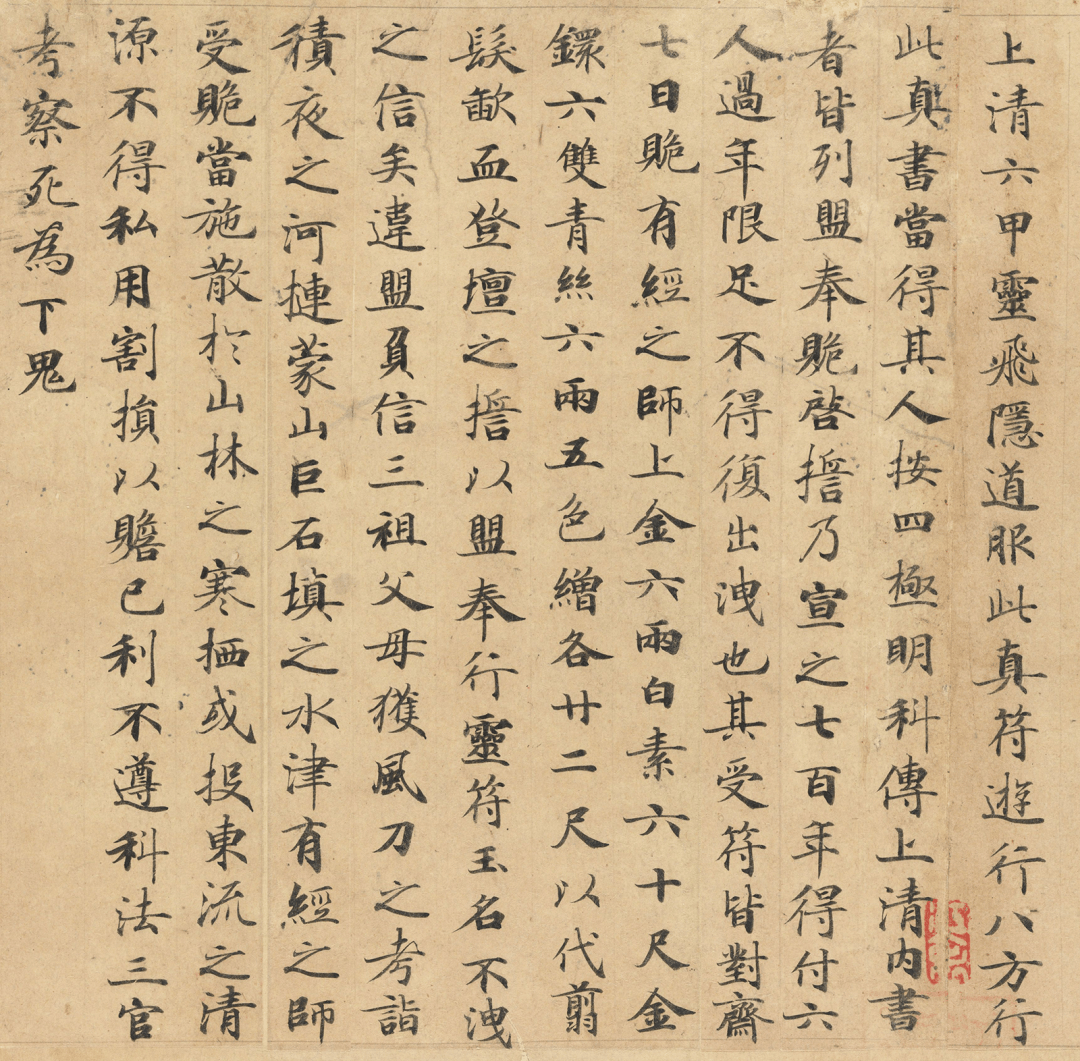 上清六甲靈飛隱道服此真符遊行八方行
此真書當得其人按四極明科傳上清內書
者皆列盟奉賝啓誓乃宣之七百年得付六
人過年限足不得復出洩也其受符皆對齋
七日賝有經之師上金六兩白素六十尺金
鐶六雙青絲六兩五色繒各廿二尺以代翦
髮歃血登壇之誓以盟奉行靈符玉名不洩
之信矣違盟負信三祖父母獲風刀之考詣
積夜之河摙蒙山巨石填之水津有經之師
受賝當施散於山林之寒栖或投東流之清
源不得私用割損以贍己利不遵科法三官
考察死為下鬼